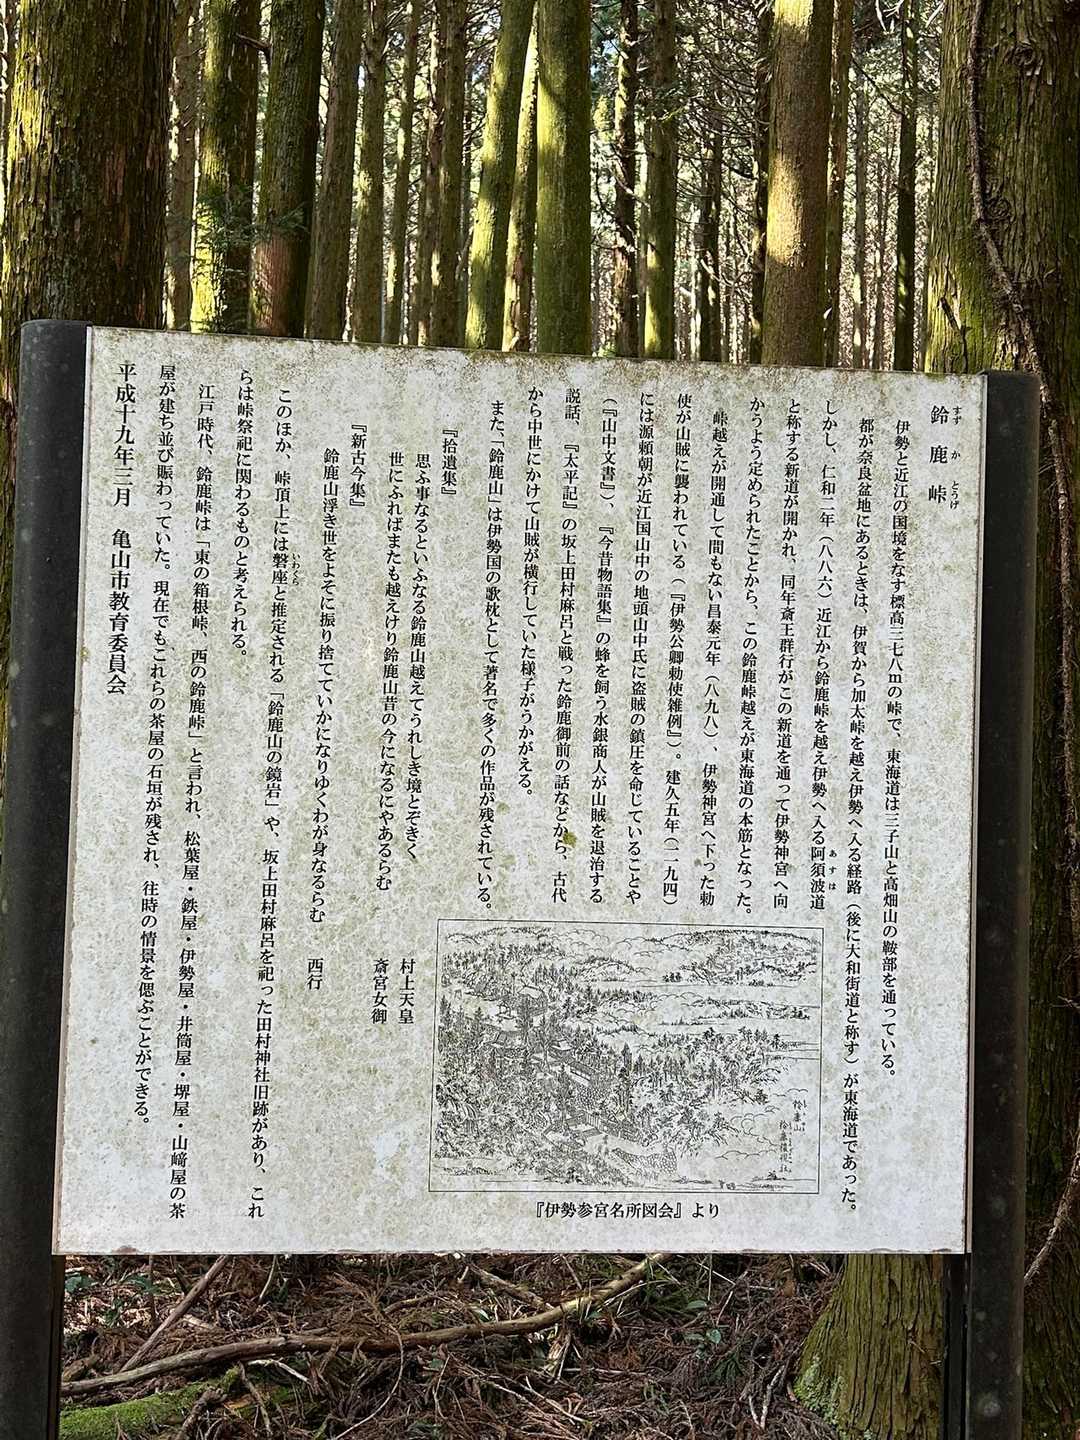 鈴鹿峠
すずかとうげ
伊勢と近江の国境をなす標高三七八mの峠で、東海道は三子山と高畑山の鞍部を通っている。
都が奈良盆地にあるときは、伊賀から加太峠を越え伊勢へ入る経路（後に大和街道と称す）が東海道であった。
しかし、仁和二年（八八六）近江から鈴鹿峠を越え伊勢へ入る阿須波道
あすは
と称する新道が開かれ、同年斎王群行がこの新道を通って伊勢神宮へ向
かうよう定められたことから、この鈴鹿峠越えが東海道の本筋となった。
峠越えが開通して間もない昌泰元年（八九八）、伊勢神宮へ下った勅
使が山賊に襲われている（『伊勢公卿勅使雑例』）。建久五年（一一九四）
には源頼朝が近江国山中の地頭山中氏に盗賊の鎮圧を命じていることや
（『山中文書』）、『今昔物語集』の蜂を飼う水銀商人が山賊を退治する
説話、『太平記』の坂上田村麻呂と戦った鈴鹿御前の話などから、古代
から中世にかけて山賊が横行していた様子がうかがえる。
また、「鈴鹿山」は伊勢国の歌枕として著名で多くの作品が残されている。
『拾遺集』
思ふ事なるといふなる鈴鹿山越えてうれしき境とぞきく 村上天皇
世にふればまたも越えけり鈴鹿山昔の今になるにやあるらむ 斎宮女御
『新古今集』
鈴鹿山浮き世をよそに振り捨てていかになりゆくわが身なるらむ 西行
このほか、峠頂上には磐座と推定される「鈴鹿山の鏡岩」や、坂上田村麻呂を祀った田村神社旧跡があり、これ
いわくら
らは峠祭祀に関わるものと考えられる。
江戸時代、鈴鹿峠は「東の箱根峠、西の鈴鹿峠」と言われ、松葉屋・鉄屋・伊勢屋・井筒屋・堺屋・山﨑屋の茶
屋が建ち並び賑わっていた。現在でもこれらの茶屋の石垣が残され、往時の情景を偲ぶことができる。
平成十九年三月 亀山市教育委員会
鈴鹿山
『伊勢参宮名所図会』より